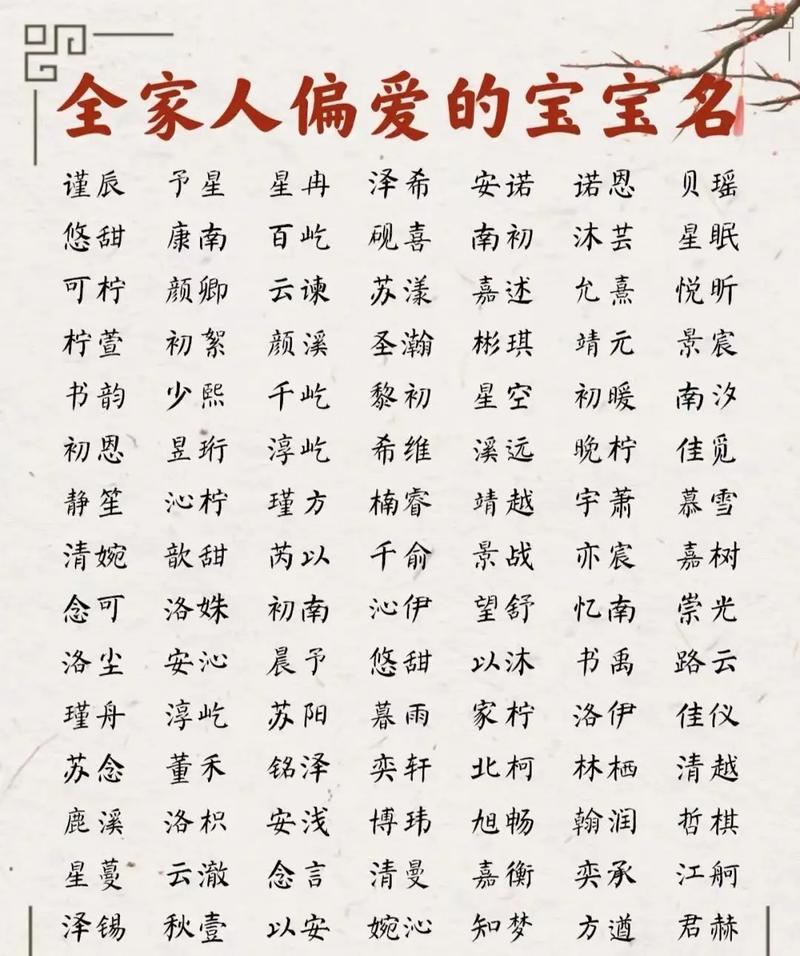 全家人偏爱的宝宝名
谨辰 予星 星冉 泽希 安诺 诺恩 贝瑶
悠甜 康南 百屹 砚喜 南初 沐芸 星眠
可柠 颜卿 云谏 苏漾 嘉述 允熹 悦昕
柠萱 初絮 颜溪 圣瀚 彬琪 靖元 景宸
书韵 少熙 千屹 黎初 星空 初暖 南汐
初恩 昱珩 淳屹 希维 溪远 晚柠 佳觅
静笙 沁柠 瑾方 楠睿 靖越 宇萧 慕雪
清婉 歆甜 芮以 千俞 景战 亦宸 嘉树
念可 洛姝 初南 沁伊 望舒 忆南 崇光
洛尘 安沁 晨予 悠甜 以沐 书禹 路云
瑾舟 淳屹 苏阳 暮雨 家柠 洛伊 佳仪
苏念 董禾 铭泽 奕轩 北柯 林栖 清越
鹿溪 洛枳 安浅 博玮 旭畅 翰润 哲棋
星蔓 云澈 念言 清曼 嘉衡 奕承 江舸
泽锡 秋壹 以安 婉沁 知梦 方遒 君赫